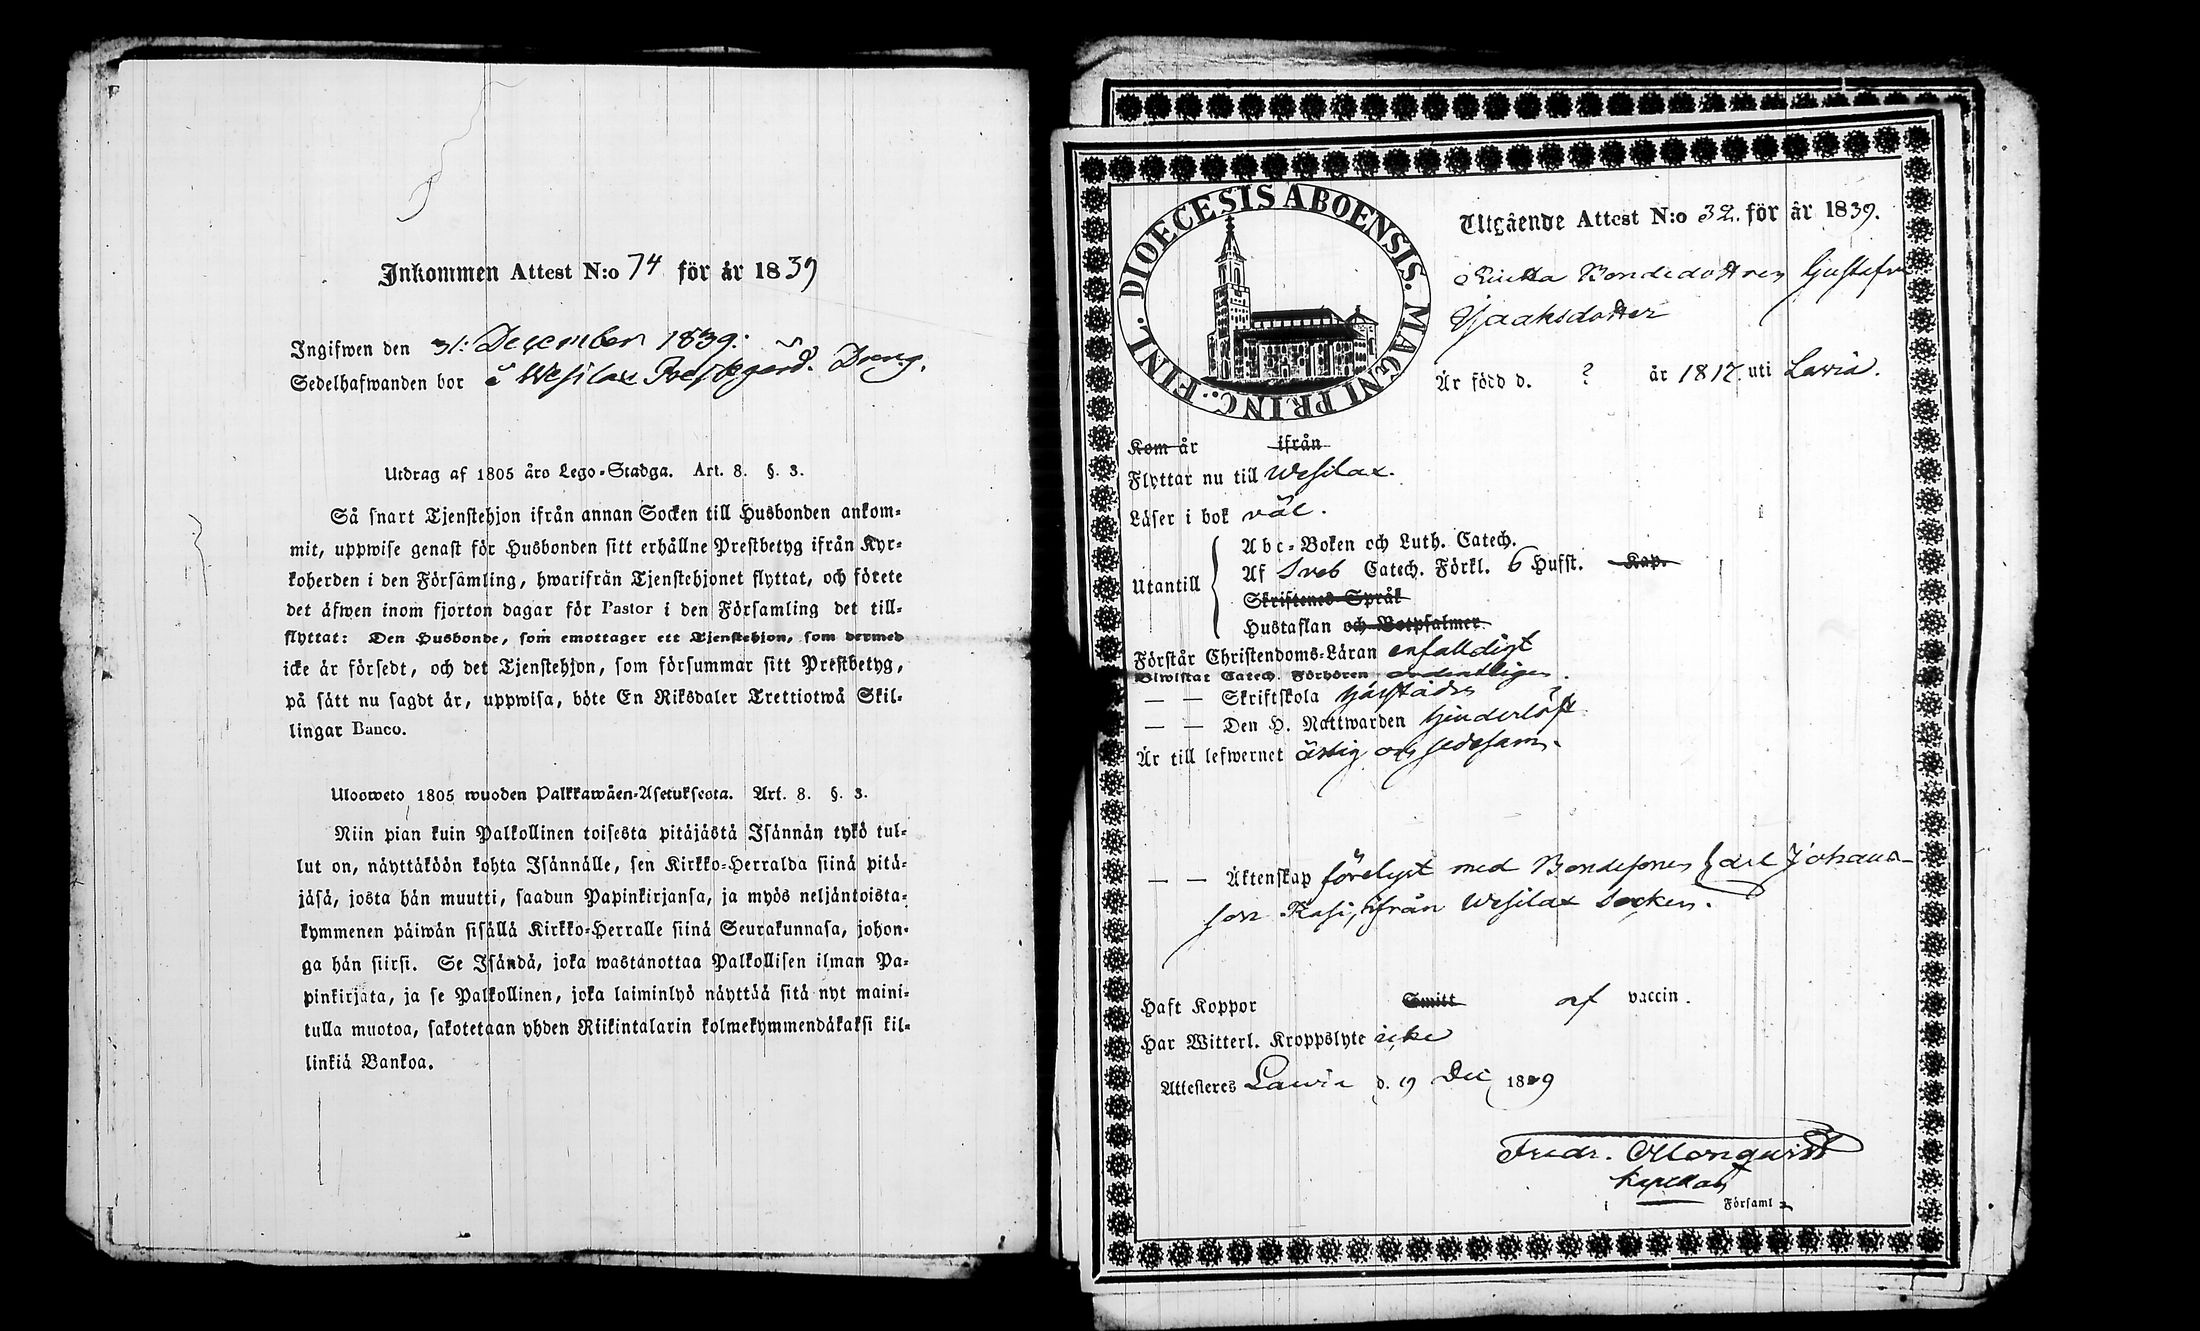 Inkommen Attest N:o 74 för år 1839
Ingifwen den 31: December 1839.
Sedelhafwanden bor å Wesilax Prestgård. Dreng.
Utdrag af 1805 års Lego-Stadga. Art. 8. §. 3.
Så snart Tjenstehjon ifrån annan Socken till Husbonden ankom-
mit, uppwise genast för Husbonden sitt erhållne Prestbetyg ifrån Kyr-
koherden i den Församling, hwarifrån Tjenstehjonet flyttat, och förete
det äfwen inom fjorton dagar för Pastor i den Församling det till-
flyttat: Den Husbonde, som emottager ett Tjenstehjon, som dermed
icke är försedt, och det Tjenstehjon, som försummar sitt Prestbetyg,
på sätt nu sagdt är, uppwisa, böte En Riksdaler Trettiotwå Skil-
lingar Banco.
Ulosweto 1805 wuoden Palkkawäen-Asetuksesta. Art. 8. §. 3.
Niin pian kuin Palkollinen toisesta pitäjästä Isännän tykö tul-
lut on, näyttäköön kohta Isännälle, sen Kirkko-Herralda siinä pitä-
jäsä, josta hän muutti, saadun Papinkirjansa, ja myös neljäntoista-
kymmenen päiwän sisällä Kirkko-Herralle siinä Seurakunnasa, johon-
ga hän siirsi. Se Isändä, joka wastanottaa Palkollisen ilman Pa-
pinkirjata, ja se Palkollinen, joka laiminlyö näyttää sitä nyt maini-
tulla muotoa, sakotetaan yhden Riikintalarin kolmekymmendäkaksi kil-
linkiä Bankoa.
DIOECESIS ABOENSIS. MAGNI PRINC. FINL.
Utgående Attest N:o 32. för år 1839.
Bondedottren Gustafva
Jaaksdotter
Är född d. ? år 1817. uti Lavia.
Kom år ifrån
Flyttar nu till Wesilax.
Läser i bok väl.
Utantill
Abc-Boken och Luth. Catech.
Af Sveb Catech. Förkl. 6 Hufst. Kap.
Skriftenes Språk
Hustaflan och Botpsalmer.
Förstår Christendoms-Läran enfalldigt
Biwistat Catech. Förhören ordentligen.
— — Skriftskola härstädes
— — Den H. Nattwarden hinderlöst
Är till lefwernet ärlig och sedesam.
— — Äktenskap förelyst med Bondesonen Carl Johans-
son Kasi, ifrån Wesilax Socken.
Haft Koppor Smitt af vaccin.
Har Witterl. Kroppslyte icke
Attesteres Lavia d. 19 Dec 1839
Fredr. Monquist
Kapellan
i Församl